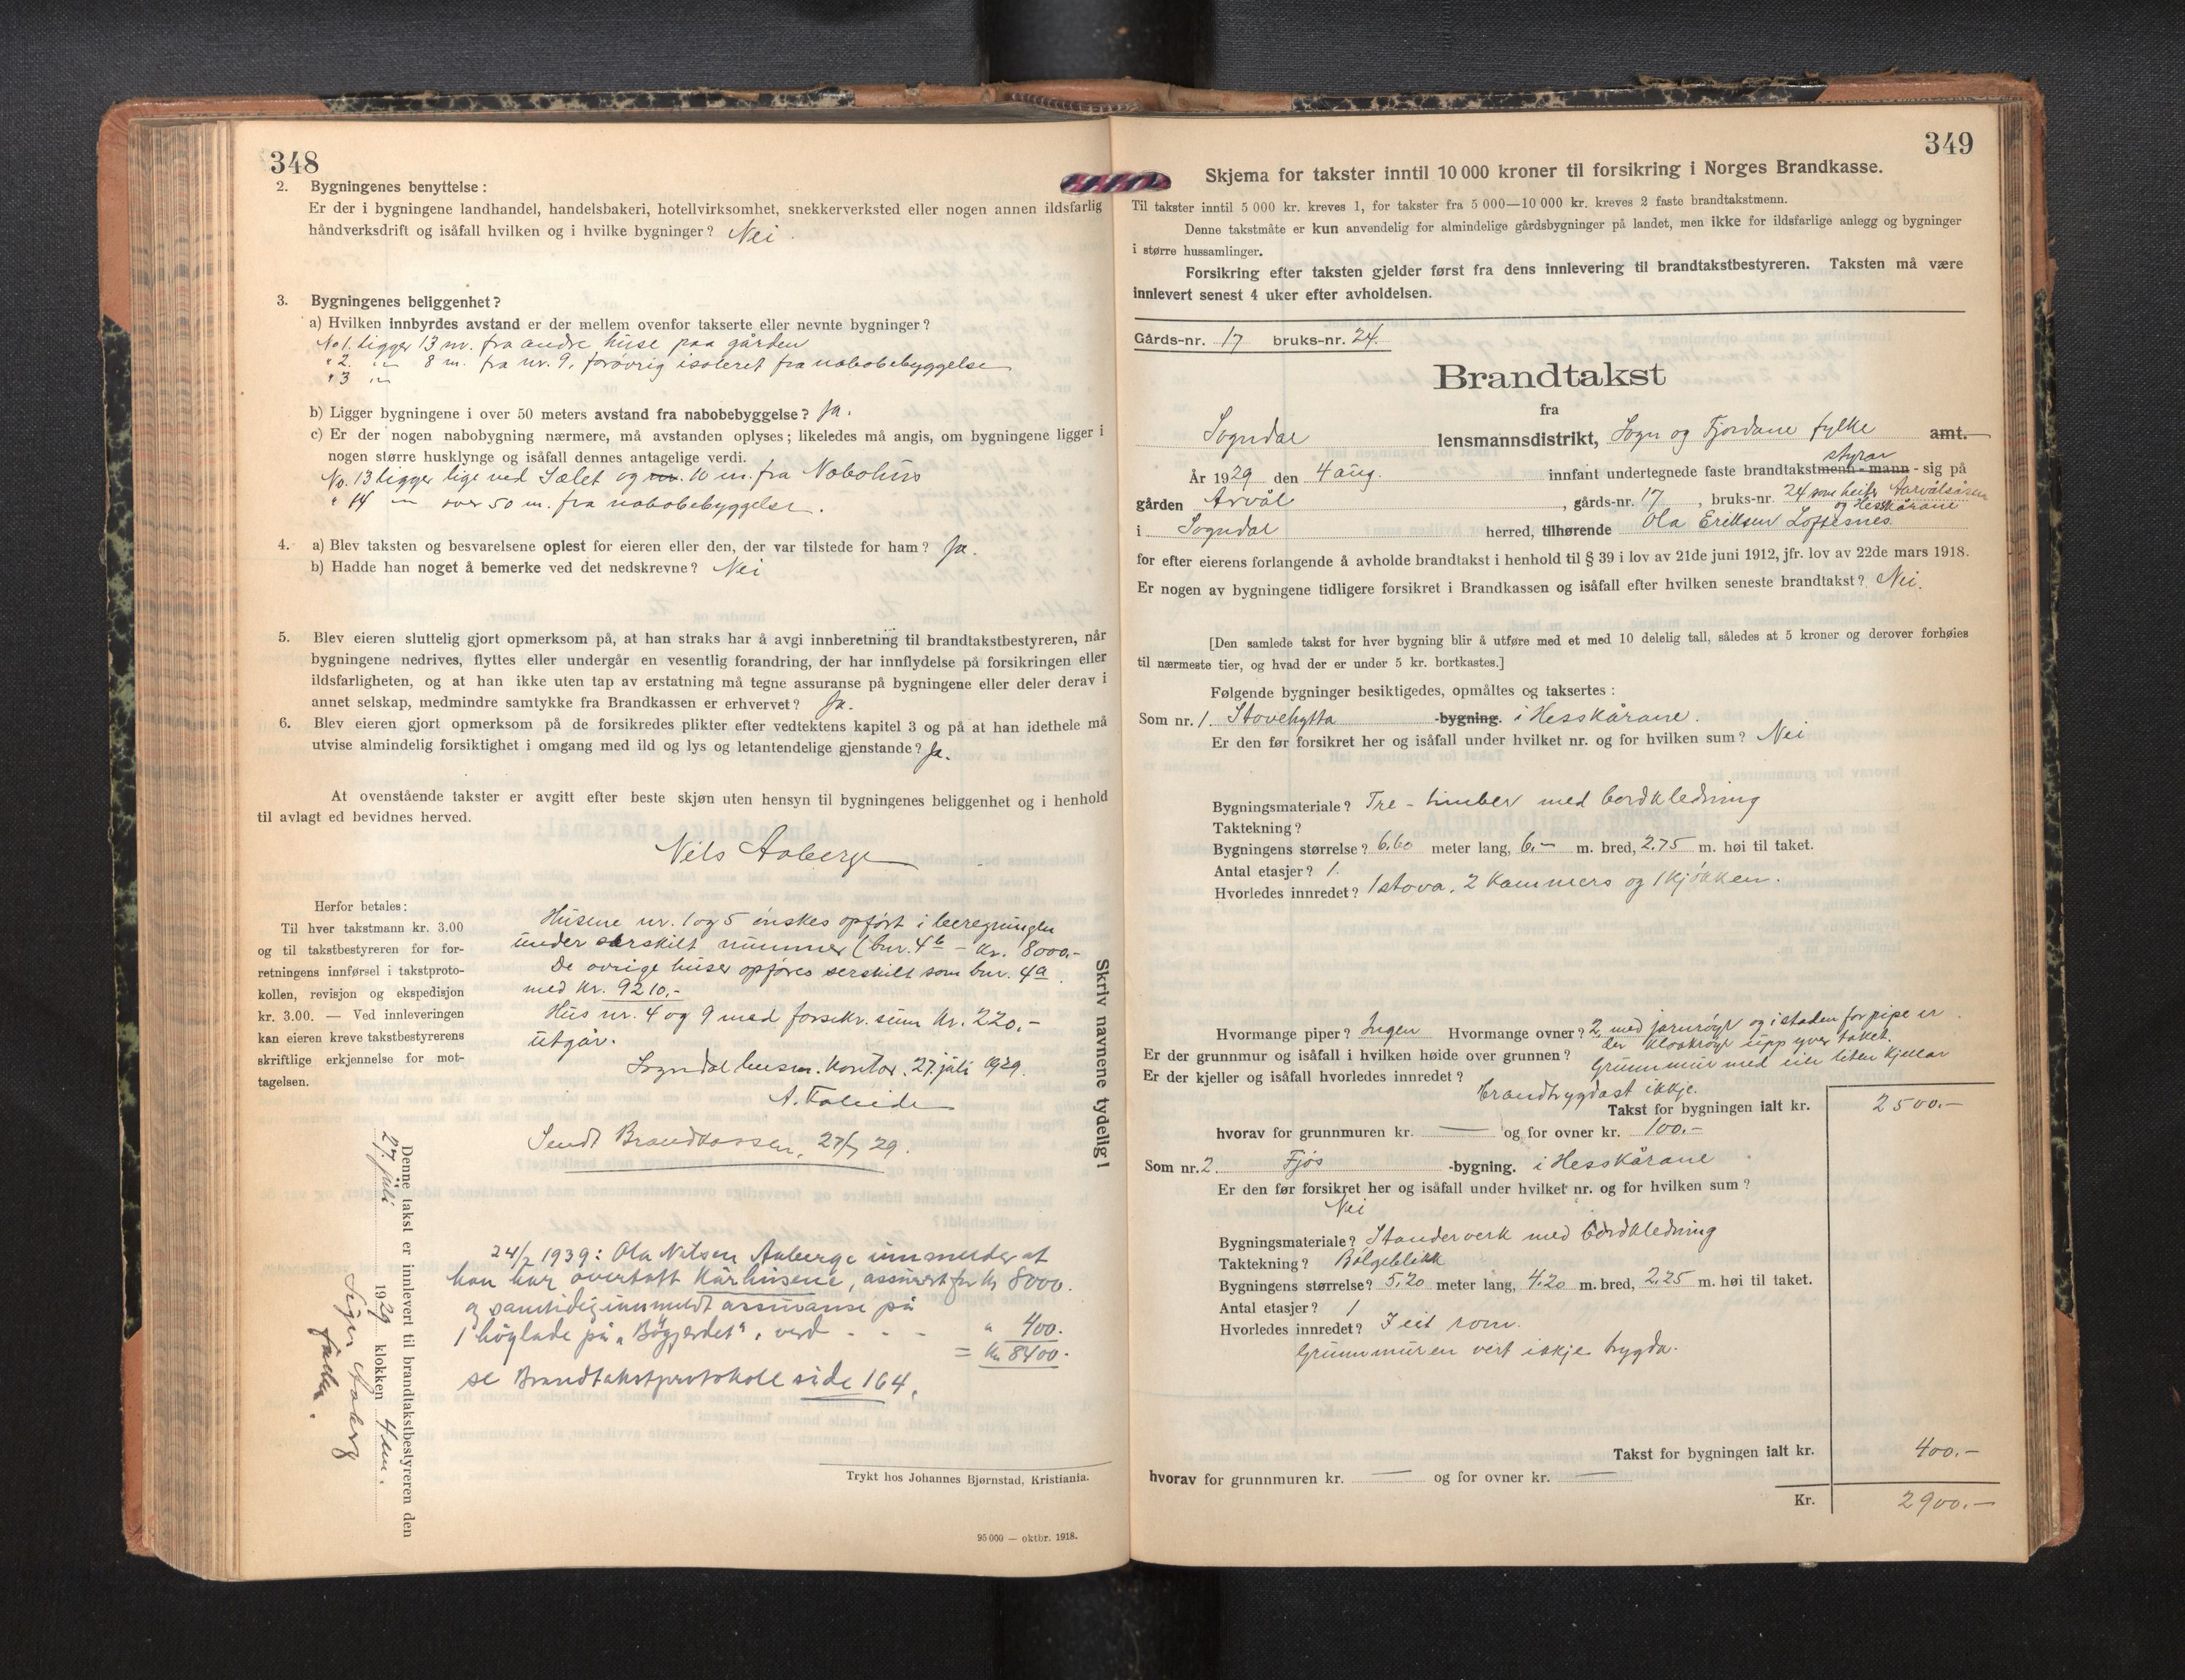 348
2. Bygningenes benyttelse:
Er der i bygningene landhandel, handelsbakeri, hotellvirksomhet, snekkerverksted eller nogen annen ildsfarlig
håndverksdrift og isåfall hvilken og i hvilke bygninger? Nei.
3. Bygningenes beliggenhet?
a) Hvilken innbyrdes avstand er der mellem ovenfor takserte eller nevnte bygninger?
No 1. ligger 13 m. fra andre huse paa gården
" 2. 8 m. fra nr. 9, forøvrig isoleret fra nabobebyggelse
" 3
b) Ligger bygningene i over 50 meters avstand fra nabobebyggelse? Ja.
c) Er der nogen nabobygning nærmere, må avstanden oplyses; likeledes må angis, om bygningene ligger i
nogen større husklynge og isåfall dennes antagelige verdi.
No. 13 ligger lige ved Sælet og 10 m. fra Nabohus
" 14 — over 50 m. fra nabobebyggelse.
4. a) Blev taksten og besvarelsene oplest for eieren eller den, der var tilstede for ham? Ja.
b) Hadde han noget å bemerke ved det nedskrevne? Nei
5. Blev eieren sluttelig gjort opmerksom på, at han straks har å avgi innberetning til brandtakstbestyreren, når
bygningene nedrives, flyttes eller undergår en vesentlig forandring, der har innflydelse på forsikringen eller
ildsfarligheten, og at han ikke uten tap av erstatning må tegne assuranse på bygningene eller deler derav i
annet selskap, medmindre samtykke fra Brandkassen er erhvervet? Ja.
6. Blev eieren gjort opmerksom på de forsikredes plikter efter vedtektens kapitel 3 og på at han idethele må
utvise almindelig forsiktighet i omgang med ild og lys og letantendelige gjenstande? Ja.
At ovenstående takster er avgitt efter beste skjøn uten hensyn til bygningenes beliggenhet og i henhold
til avlagt ed bevidnes herved.
Nils Aaberge
Herfor betales:
Til hver takstmann kr. 3.00
og til takstbestyreren for for-
retningens innførsel i takstproto-
kollen, revisjon og ekspedisjon
kr. 3.00. — Ved innleveringen
kan eieren kreve takstbestyrerens
skriftlige erkjennelse for mot-
tagelsen.
Husene nr. 1 og 5 ønskes opført i beregningen
under særskilt nummer (bnr. 4b – kr. 8000,-
De øvrige huser opføres særskilt som bnr. 4a
med kr. 9210,-
Hus nr. 4 og 9 med forsikr. sum kr. 220,-
utgår.
Sogndal lensm. kontor, 27. juli 1929.
Sendt Brandkassen, 27/7 29.
24/2 1939: Ola Nilsen Aaberge innmelder at
han har overtatt Kårhusene, assurert for kr 8000.
og samtidig innmeldt assuranse på
1 høylade på "Bøgjerdet", verd - - - " 400.
= kr. 8400.
se Brandtakstprotokoll side 164.
Denne takst er innlevert til brandtakstbestyreren den
27. juli 1929 klokken 4 em.
Skriv navnene tydelig!
Trykt hos Johannes Bjørnstad, Kristiania.
95 000 — oktbr. 1918.
349
Skjema for takster inntil 10 000 kroner til forsikring i Norges Brandkasse.
Til takster inntil 5 000 kr. kreves 1, for takster fra 5 000—10 000 kr. kreves 2 faste brandtakstmenn.
Denne takstmåte er kun anvendelig for almindelige gårdsbygninger på landet, men ikke for ildsfarlige anlegg og bygninger
i større hussamlinger.
Forsikring efter taksten gjelder først fra dens innlevering til brandtakstbestyreren. Taksten må være
innlevert senest 4 uker efter avholdelsen.
Gårds-nr. 17 bruks-nr. 24.
Brandtakst
fra
Sogndal lensmannsdistrikt, Sogn og Fjordane fylke amt.
styrar
År 1929 den 4 aug. innfant undertegnede faste brandtakstmenn - mann - sig på
gården Arvål, gårds-nr. 17, bruks-nr. 24 som heiter Aarvålsåsen
og Hesskårane
i Sogndal herred, tilhørende Ola Eriksen Loftesnes.
for efter eierens forlangende å avholde brandtakst i henhold til § 39 i lov av 21de juni 1912, jfr. lov av 22de mars 1918.
Er nogen av bygningene tidligere forsikret i Brandkassen og isåfall efter hvilken seneste brandtakst? Nei.
[Den samlede takst for hver bygning blir å utføre med et med 10 delelig tall, således at 5 kroner og derover forhøies
til nærmeste tier, og hvad der er under 5 kr. bortkastes.]
Følgende bygninger besiktigedes, opmåltes og taksertes:
Som nr. 1. Stovehytta -bygning. i Hesskårane.
Er den før forsikret her og isåfall under hvilket nr. og for hvilken sum? Nei
Bygningsmateriale? Tre - timber med bordkledning
Taktekning?
Bygningens størrelse? 6,60 meter lang, 6,- m. bred, 2,75 m. høi til taket.
Antal etasjer? 1.
Hvorledes innredet? 1 stova, 2 kammers og 1 kjökken.
Hvormange piper? Ingen Hvormange ovner? 2, med jarnröyr og i staden for pipe er
der kloakröyr upp yver taket.
Er der grunnmur og isåfall i hvilken høide over grunnen? Grunnmur med ein liten kjellar
Er der kjeller og isåfall hvorledes innredet?
brandtrygdast ikkje.
Takst for bygningen ialt kr. 2500.-
hvorav for grunnmuren kr. — og for ovner kr. 100.-
Som nr. 2 Fjös -bygning. i Hesskårane
Er den før forsikret her og isåfall under hvilket nr. og for hvilken sum?
Nei
Bygningsmateriale? Standerverk med bordkledning
Taktekning? Bölgeblikk
Bygningens størrelse? 5,20 meter lang, 4,20 m. bred, 2,25 m. høi til taket.
Antal etasjer? 1
Hvorledes innredet? I eit rom.
Grunnmuren vert ikkje trygda.
Takst for bygningen ialt kr. 400.-
hvorav for grunnmuren kr. — og for ovner kr. —
Kr. 2900.-